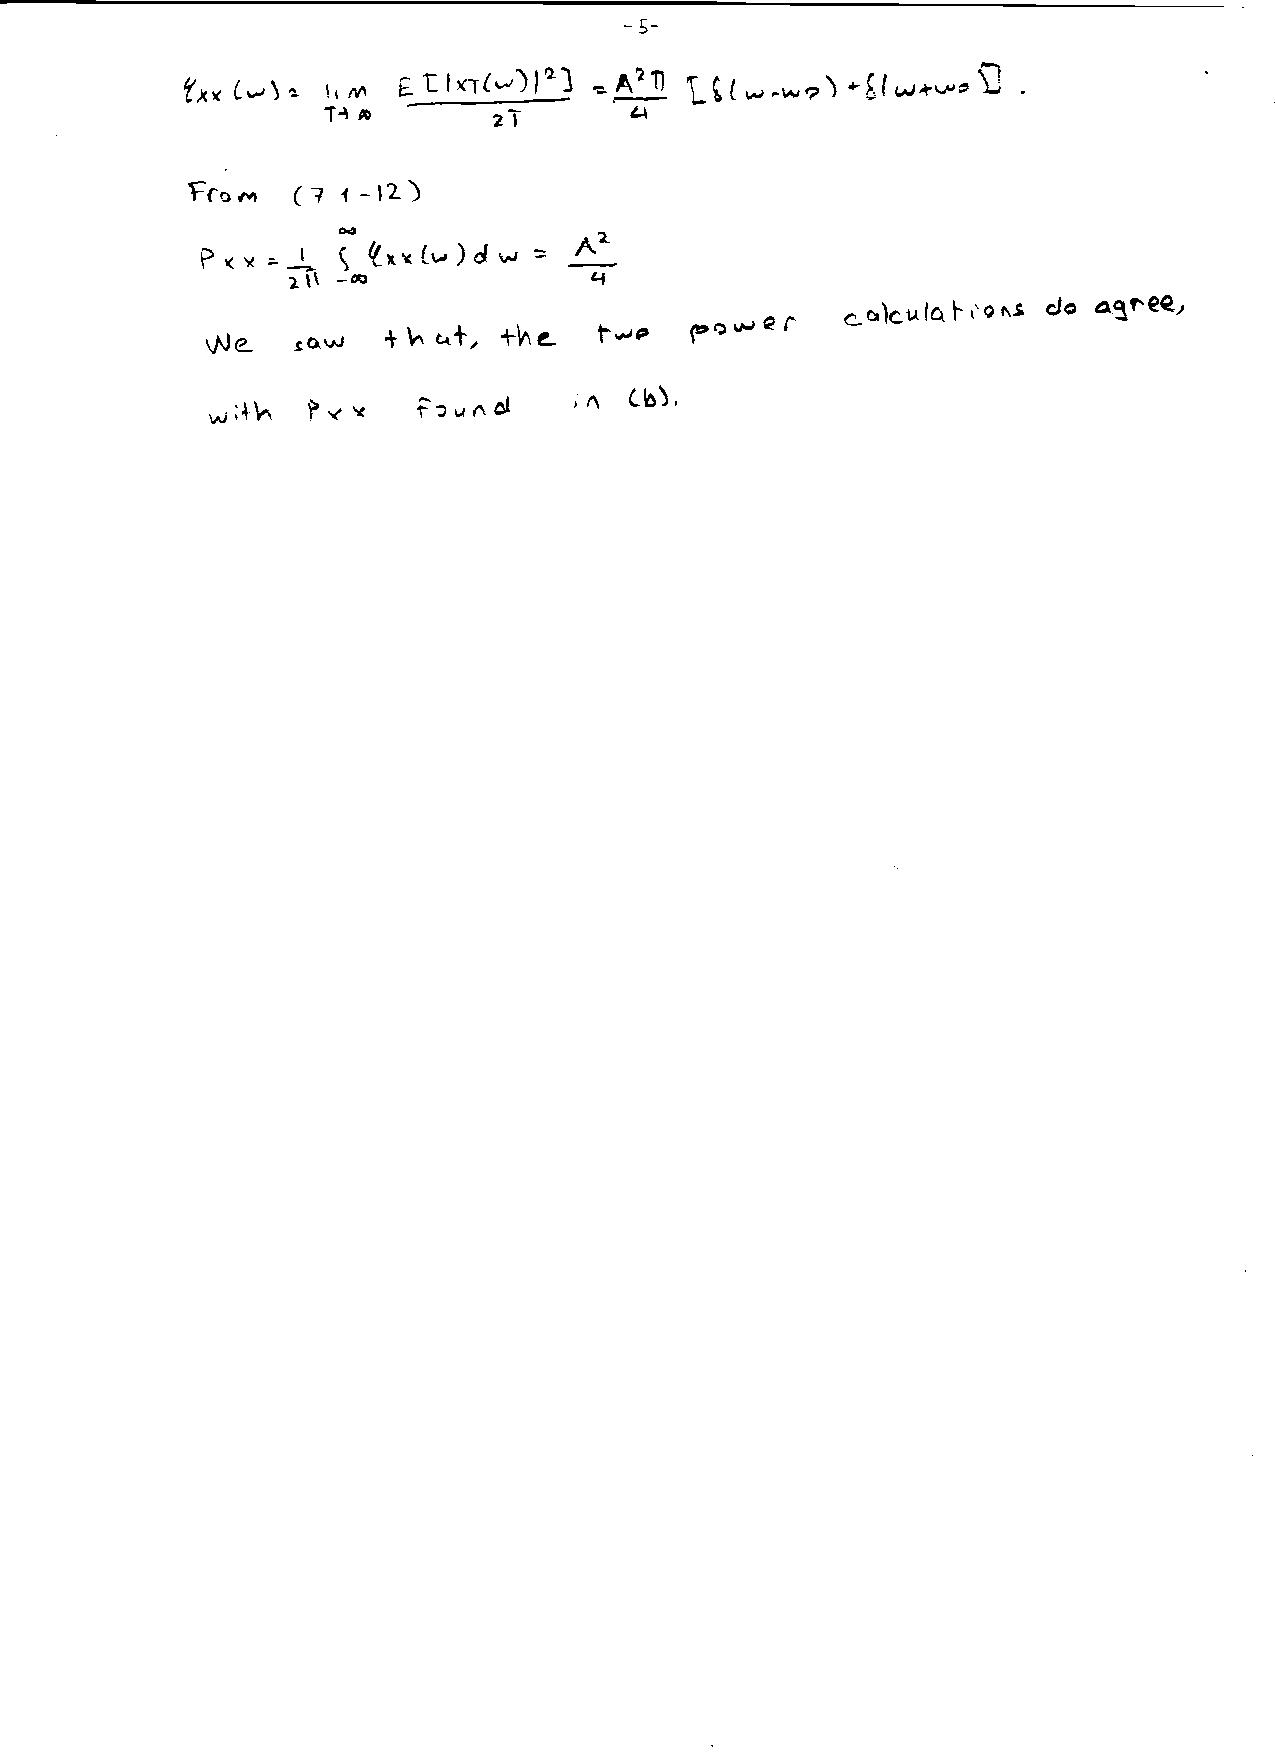 -5-
φxx(ω) = lim T→∞ E[|XT(ω)|²] / 2T = A²π / 4 [δ(ω-ω0) + δ(ω+ω0)].
From (7 1-12)
Pxx = 1/2π ∫ -∞ ∞ φxx(ω)dω = A²/4
We saw that, the two power calculations do agree,
with Pxx found in (b).